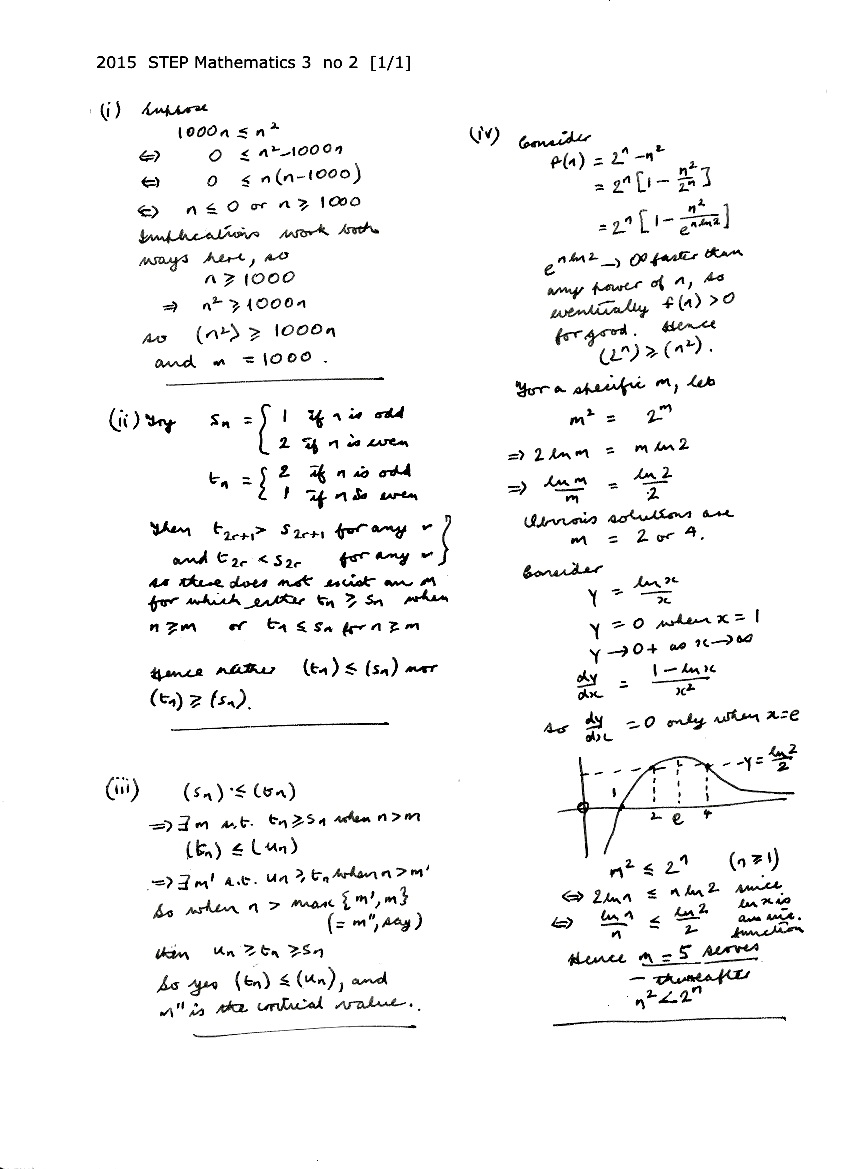 2015 STEP Mathematics 3 no 2 [1/1]
(i) Suppose
1000n ≤ n²
⇔ 0 ≤ n²-1000n
⇔ 0 ≤ n(n-1000)
⇔ n ≤ 0 or n ≥ 1000
Implications work both
ways here, so
n ≥ 1000
⇒ n² ≥ 1000n
so (n²) ≥ 1000n
and m = 1000.
(ii) Try sn = { 1 if n is odd
2 if n is even
tn = { 2 if n is odd
1 if n is even
Then t2r+1 > s2r+1 for any r
and t2r < s2r for any r }
so there does not exist an m
for which either tn ≥ sn when
n ≥ m or tn ≤ sn for n ≥ m
Hence neither (tn) ≤ (sn) nor
(tn) ≥ (sn).
(iii) (sn) ≤ (tn)
⇒ ∃ m s.t. tn ≥ sn when n > m
(tn) ≤ (un)
⇒ ∃ m' s.t. un ≥ tn when n > m'
So when n > max {m', m}
(= m", say)
then un ≥ tn ≥ sn
So yes (tn) ≤ (un), and
m" is the critical value.
(iv) Consider
f(n) = 2ⁿ - n²
= 2ⁿ [1 - n²/2ⁿ]
= 2ⁿ [1 - n²/e^(n ln 2)]
e^(n ln 2) → ∞ faster than
any power of n, so
eventually f(n) > 0
for good. Hence
(2ⁿ) ≥ (n²).
For a specific m, let
m² = 2ᵐ
⇒ 2 ln m = m ln 2
⇒ ln m/m = ln 2/2
Obvious solutions are
m = 2 or 4.
Consider
Y = ln x/x
Y = 0 when x = 1
Y → 0+ as x → ∞
dy/dx = 1 - ln x/x²
so dy/dx = 0 only when x = e
Y = ln 2/2
1
2 e 4
n² ≤ 2ⁿ (n ≥ 1)
⇔ 2 ln n ≤ n ln 2 since
⇔ ln n/n ≤ ln 2/2 ln x is
an inc.
function
Hence m = 5 serves
- thereafter
n² < 2ⁿ